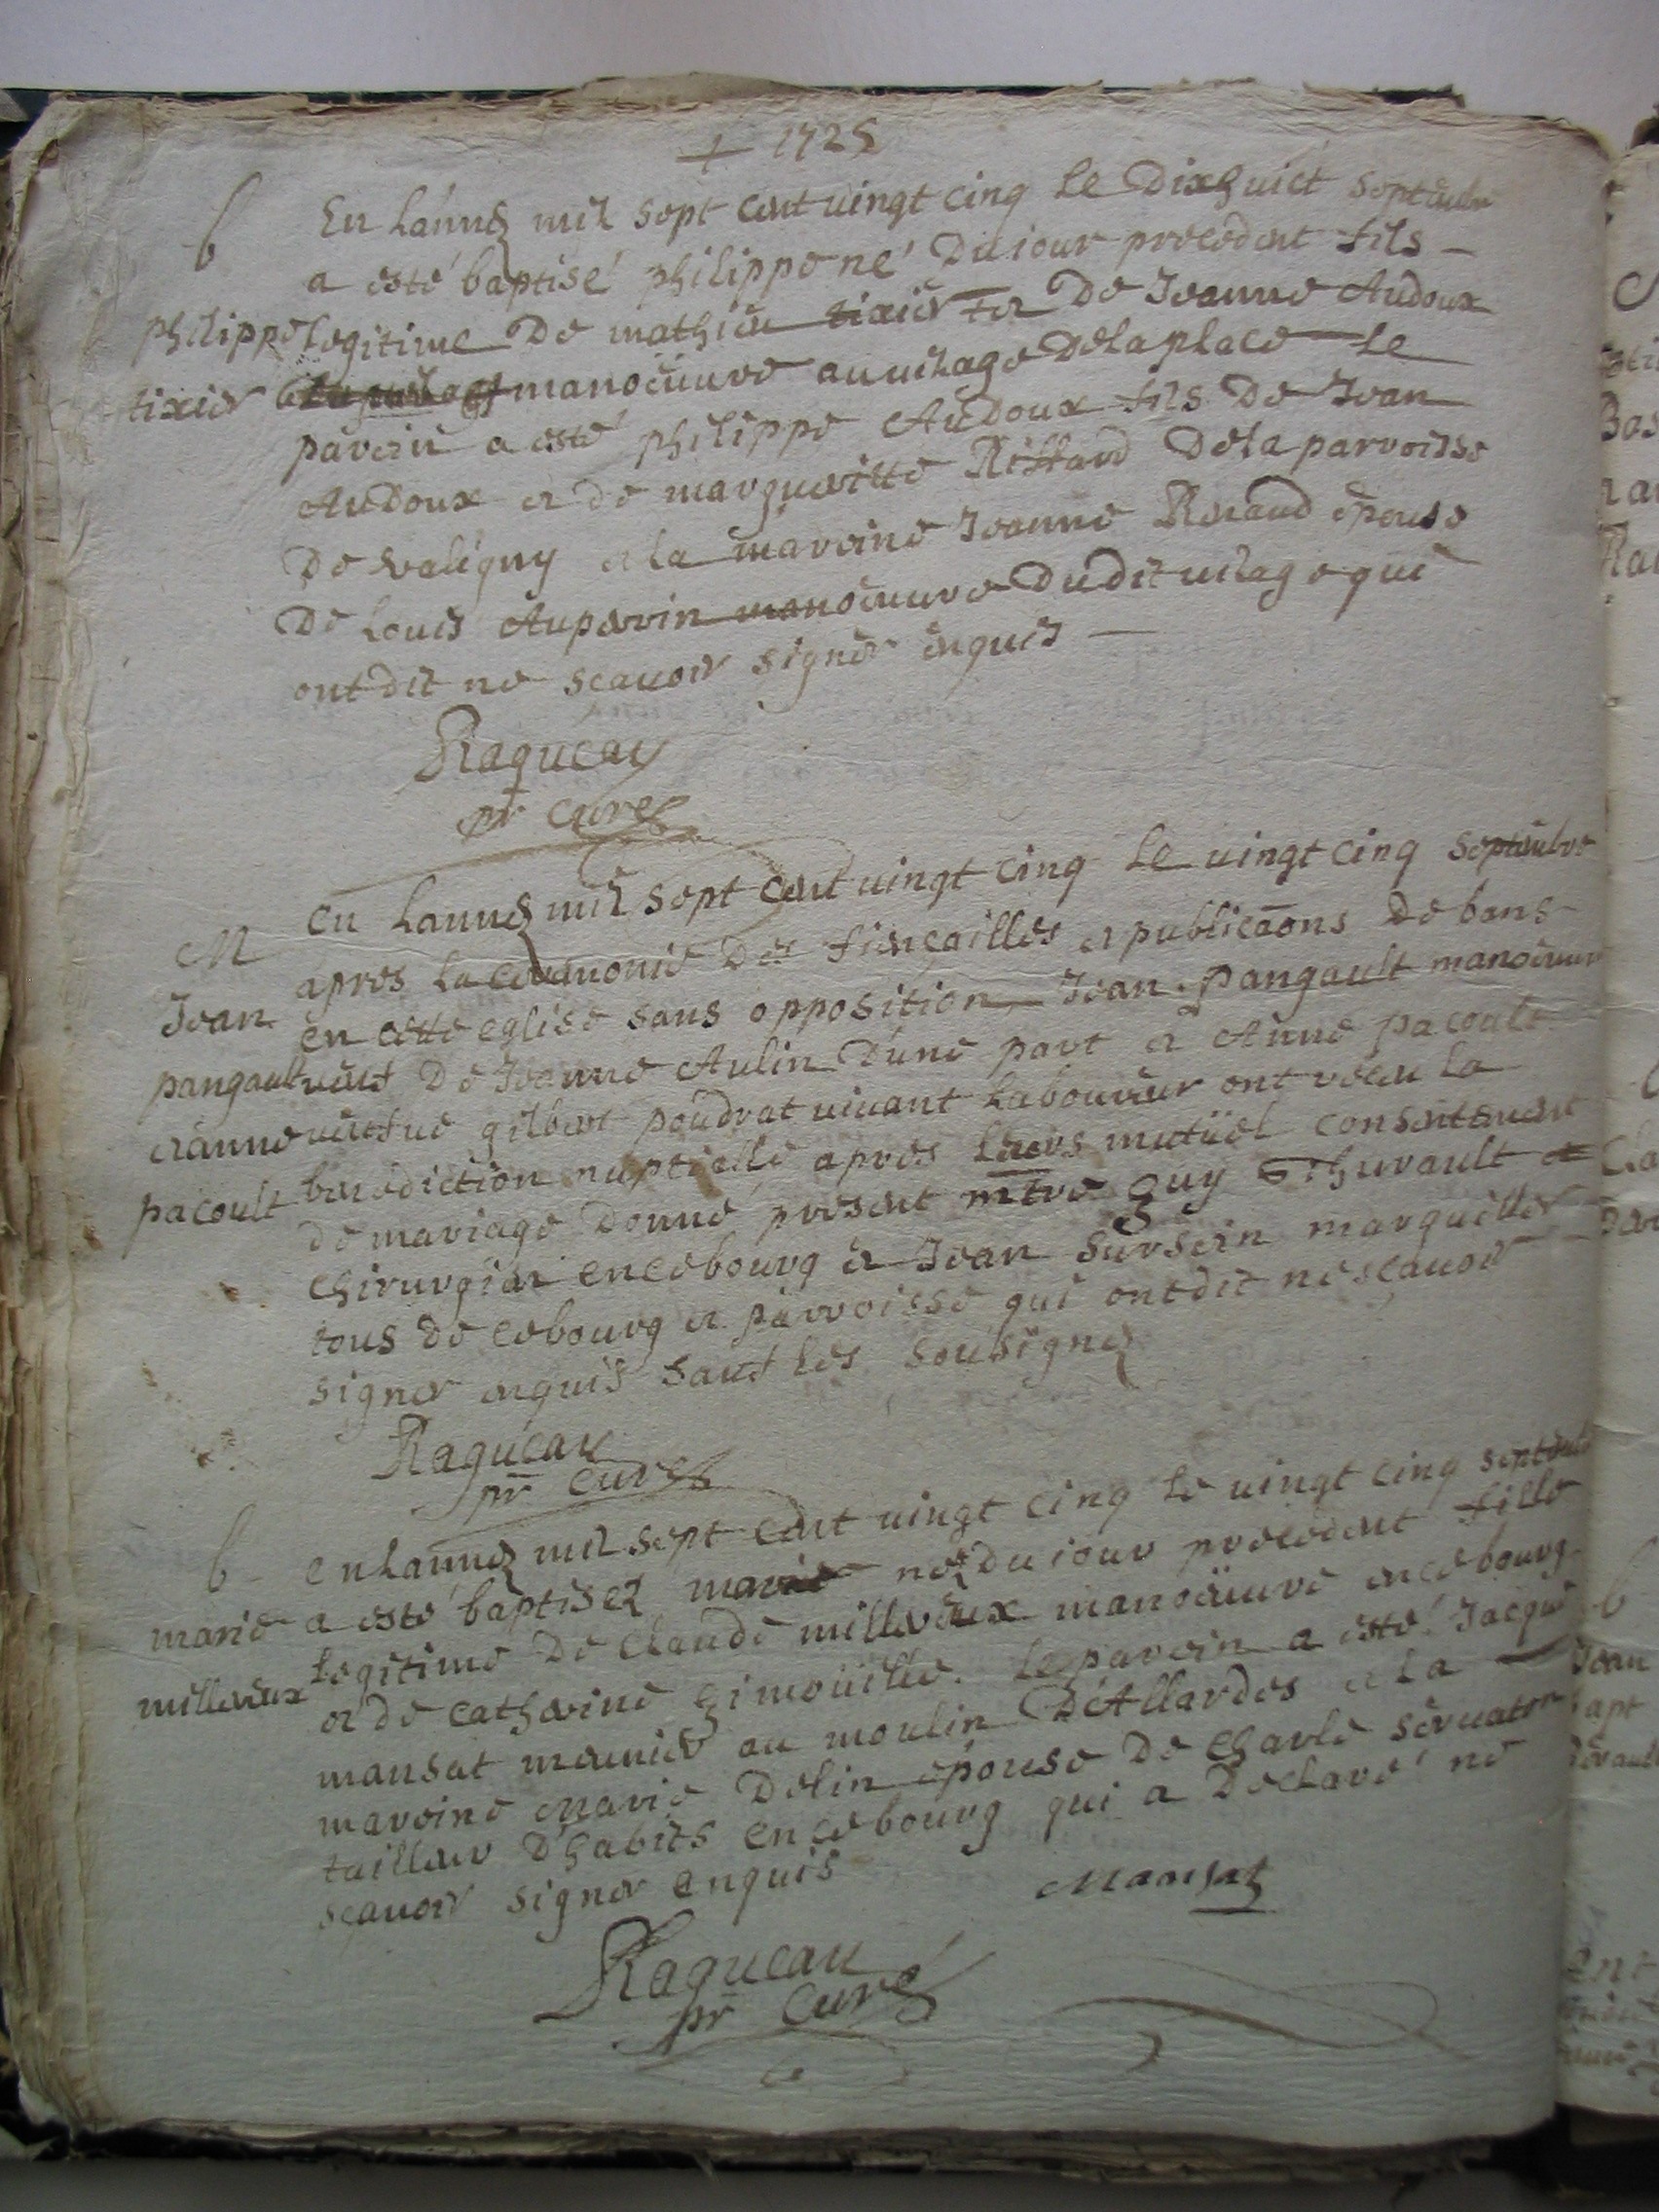 + 1725
b
En Lannez mil sept cent uingt cinq Le Dixhuict Septembre
a esté baptisé philippe né Du iour precedent fils –
philippe Legitime De mathieu tixier et De Jeanne Audoux
tixier manoeuure au uilage Delaplace Le
parein a esté philippe Audoux fils De Jean
Audoux et de margueritte Rittard Dela parroisse
De valigny et la mareine Jeanne Renaud épouse
De Louis Auperin manoeuure Dudit uilage qui
ont dit ne scauoir signer enquis –
Raqueau
pr Curé
M
en Lannez mil sept cent uingt cinq Le uingt cinq septembre
apres La ceremonie Des fiencailles et publicaons De bans
Jean en cette eglise sans opposition Jean Pangault manoeuure
pangault ueuf De Jeanne Aulin D'une part et Anne pacoult
et anne ueufue gilbert poudrat uiuant Laboureur ont receu La
pacoult benediction nuptielle apres Leurs mutüel consentement
de mariage Donné present mtre guy Thurault
chirurgien en ce bourg et Jean Sursein marguiller
tous De ce bourg et parroisse qui ont dit ne scauoir
signer enquis sauf Les sousignez
Raqueau
pr Curé
b
en Lannez mil sept cent uingt cinq Le uingt cinq septembre
marie a esté baptisez marie néz Du iour precedent fille
millereux Legitime De Claude millereux manoeuure en ce bourg
et de catherine gimouille. Le parein a esté Jacque
mansat meunier au moulin D'Allardes et La
mareine Marie Delin épouse De Charle seruaton
tailleur D'habits en ce bourg qui a Declaré ne
scauoir signer enquis
Mansat
Raqueau
pr Curé